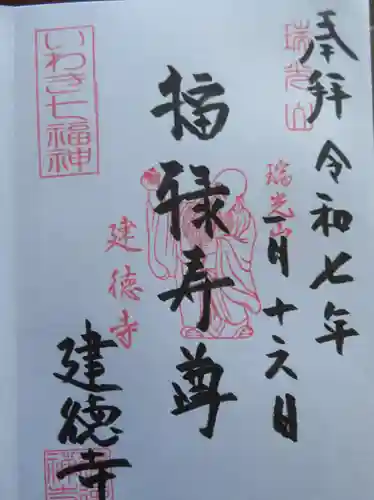 奉拝
令和七年
瑞光山
瑞光山
一月十六日
福禄寿尊
建徳寺
いわき七福神
建德寺